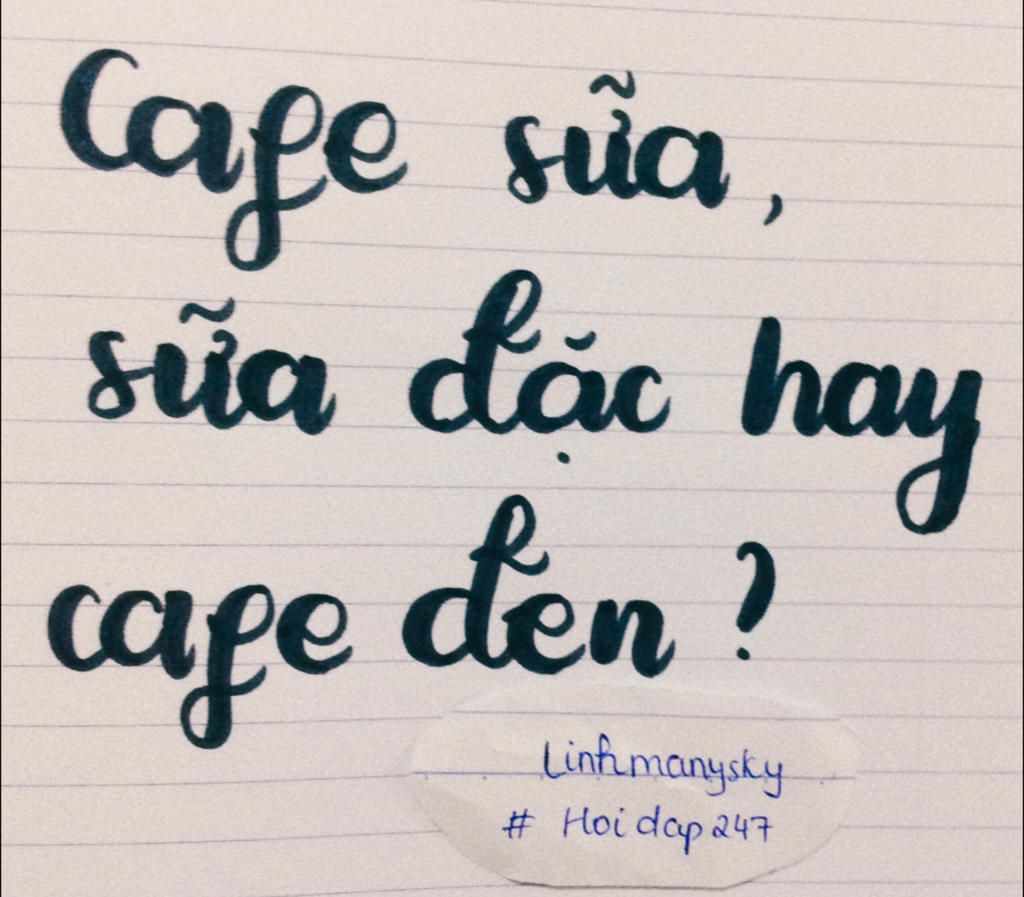 Cafe sữa,
sữa đặc hay
cafe đen?
Linhmanysky
# Hoidap247